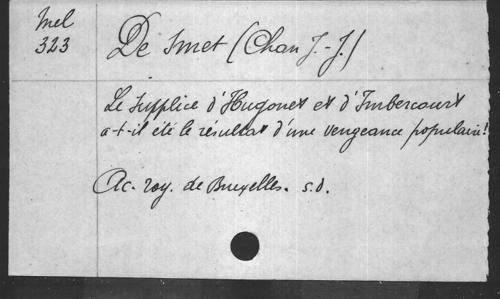 Mel
323
De Smet (Chan J.-J.)
Le supplice d'Hugonet et d'Imbercourt
a-t-il été le résultat d'une vengeance populaire?
Ac. roy. de Bruxelles. s.d.